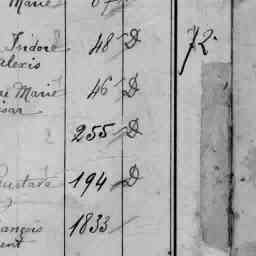 Marie 67
Isidore 48 D 72
Alexis
Marie 46 D
255 D
Gustave 194 D
François 1833